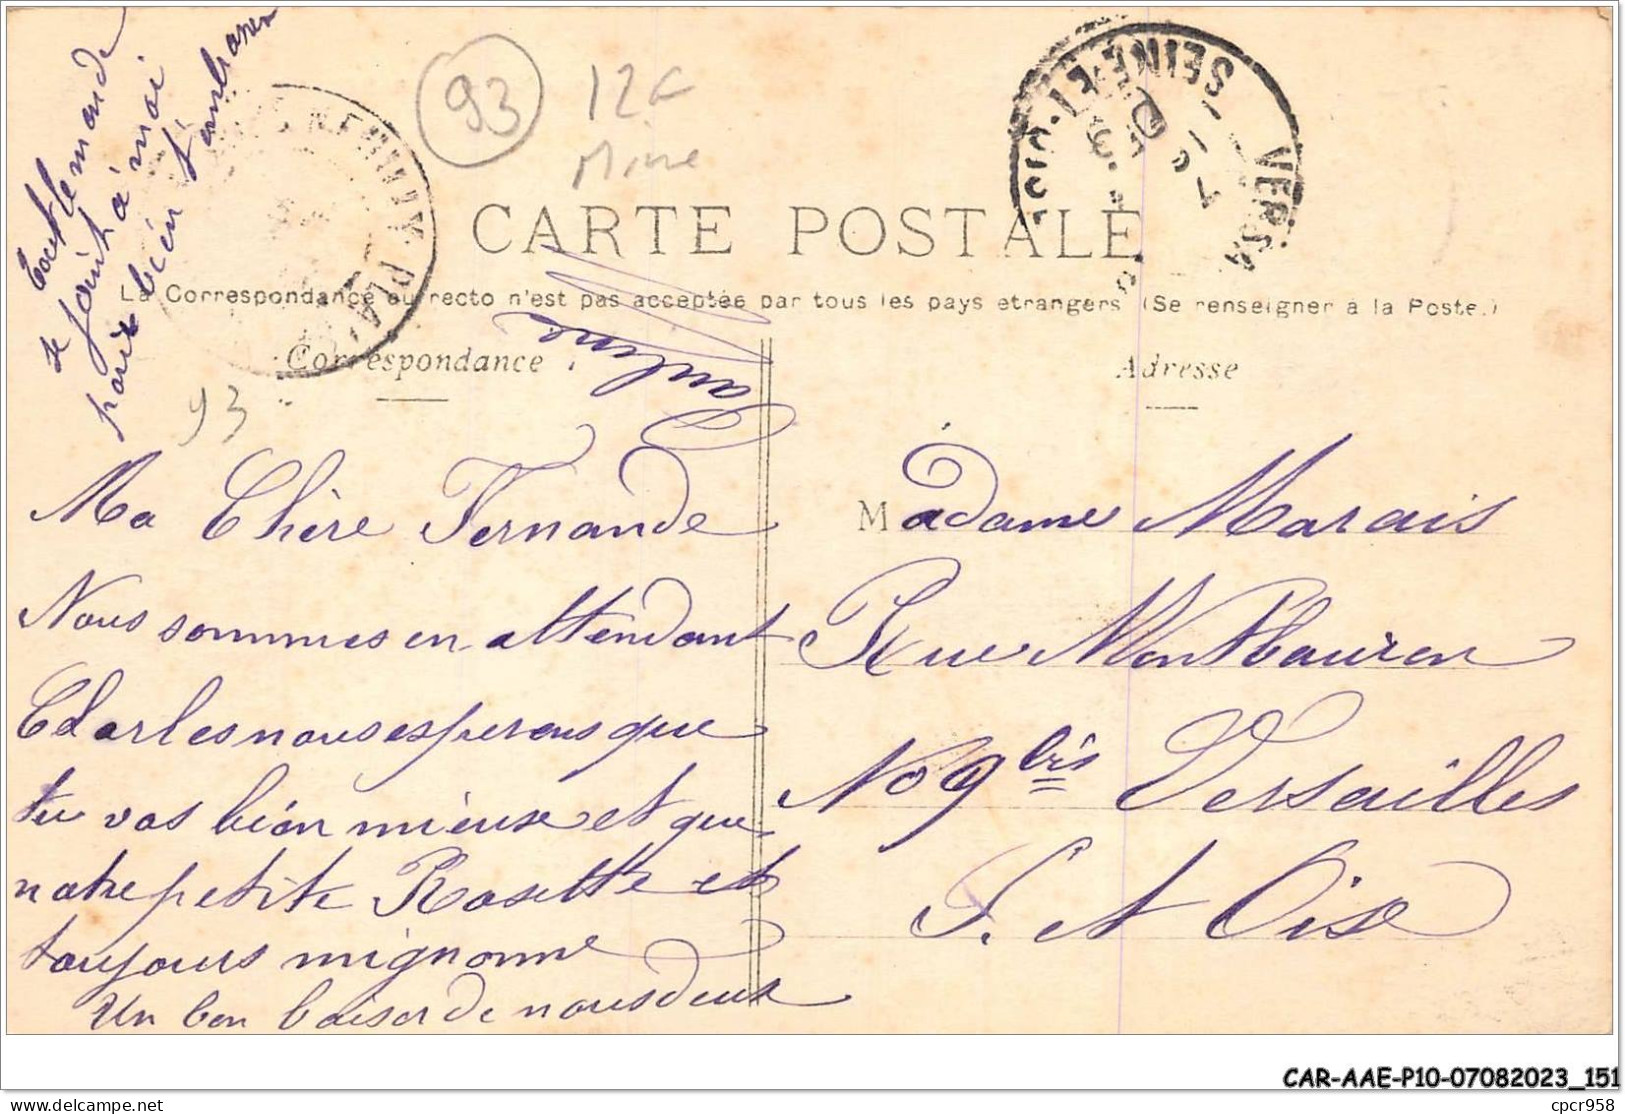 Tout le monde
se joint à moi
pour bien t'embrasser
93
12c
CARTE POSTALE
La Correspondance au recto n'est pas acceptée par tous les pays etrangers (Se renseigner à la Poste.)
Correspondance
Adresse
93
NEUILLY PLAI
VERSA
SEINE-ET-OISE
Pauline
Ma Chère Fernande
Nous sommes en attendant
Charles nous esperons que
tu vas bien mieuse et que
notre petite Rosette est
toujours mignonne
Un bon baiser de nous deux
Madame Marais
Rue Montbauron
No 9 bis Versailles
S. et Oise
CAR-AAE-P10-07082023_151
delcampe.net
cpcr958